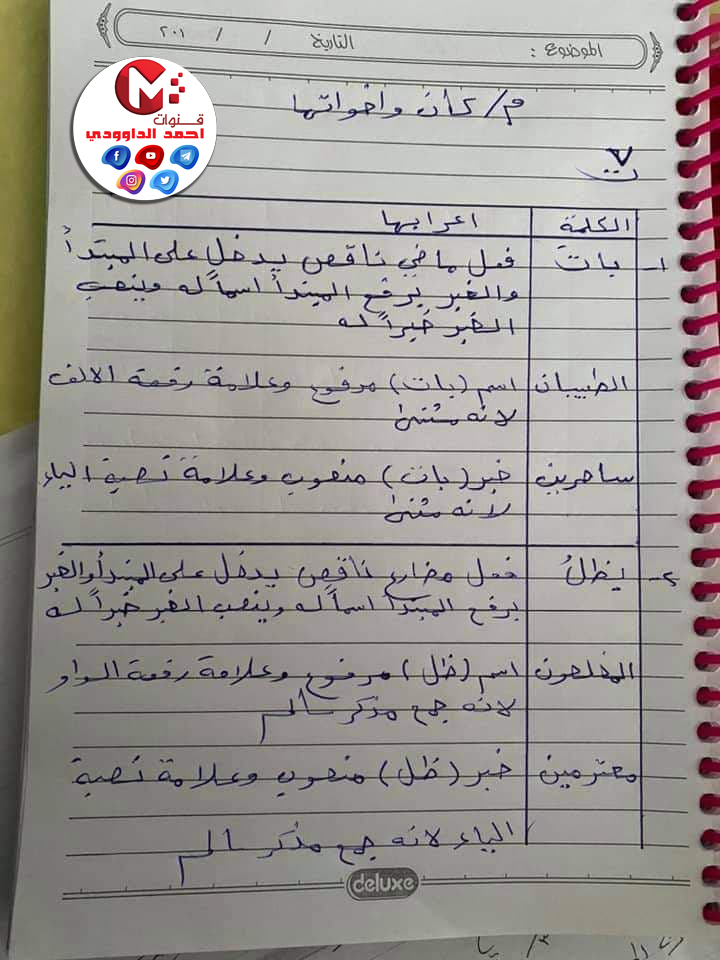 الموضوع : التاريخ / / ٢٠١
قنوات
احمد الداوودي
م/ كان واخواتها
ت٧
الكلمة اعرابها
١- بات فعل ماضي ناقص يدخل على المبتدأ
والخبر يرفع المبتدأ اسماً له وينصب
الخبر خبراً له
الطبيبان اسم (بات) مرفوع وعلامة رفعة الالف
لانه مثنى
ساهرين خبر (بات) منصوب وعلامة نصبة الياء
لانه مثنى
٢- يظلُ فعل مضارع ناقص يدخل على المبتدأ والخبر
يرفع المبتدأ اسماً له وينصب الخبر خبراً له
المخلصون اسم (ظل) مرفوع وعلامة رفعة الواو
لانه جمع مذكر سالم
محترمين خبر (ظل) منصوب وعلامة نصبة
الياء لانه جمع مذكر سالم
deluxe